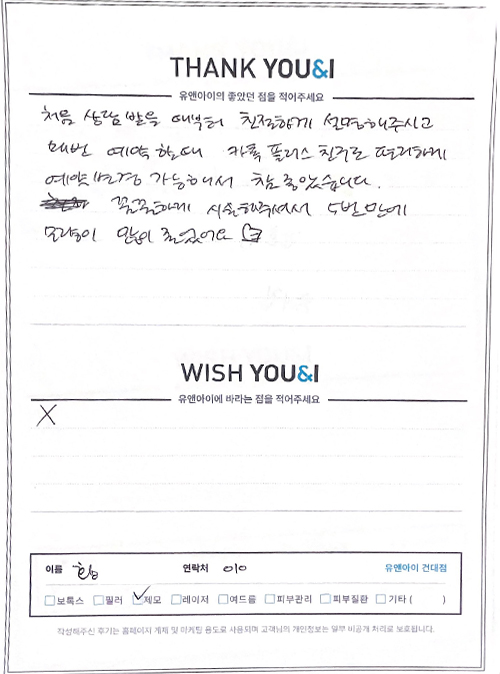 THANK YOU&I
유앤아이의 좋았던 점을 적어주세요
처음 상담 받을 때부터 친절하게 설명해주시고
매번 예약 할때 카톡 플러스 친구로 편리하게
예약변경 가능해서 참 좋았습니다.
꼼꼼하게 시술해주셔서 5번만에
모량이 많이 줄었어요
WISH YOU&I
유앤아이에 바라는 점을 적어주세요
X
이름 연락처 010 유앤아이 건대점
보톡스 필러 제모 레이저 여드름 피부관리 피부질환 기타 ( )
작성해주신 후기는 홈페이지 게재 및 마케팅 용도로 사용되며 고객님의 개인정보는 일부 비공개 처리로 보호됩니다.